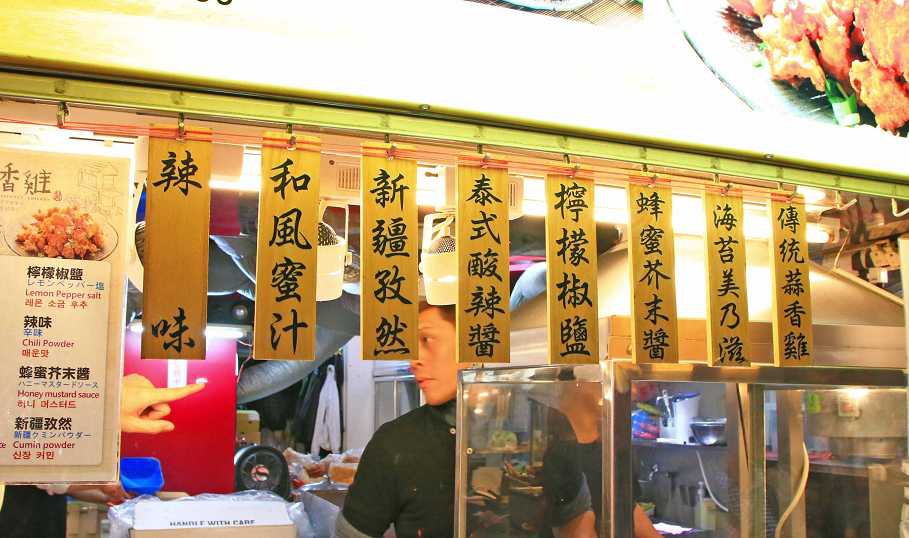 香雞
檸檬椒鹽
レモンペッパー塩
Lemon Pepper salt
레몬 소금 후추
辣味
辛味
Chili Powder
매운맛
蜂蜜芥末醬
ハニーマスタードソース
Honey mustard sauce
허니 머스터드
新疆孜然
新疆クミンパウダー
Cumin powder
신장 커민
辣味
和風蜜汁
新疆孜然
泰式酸辣醬
檸檬椒鹽
蜂蜜芥末醬
海苔美乃滋
傳統蒜香雞
HANDLE WITH CARE